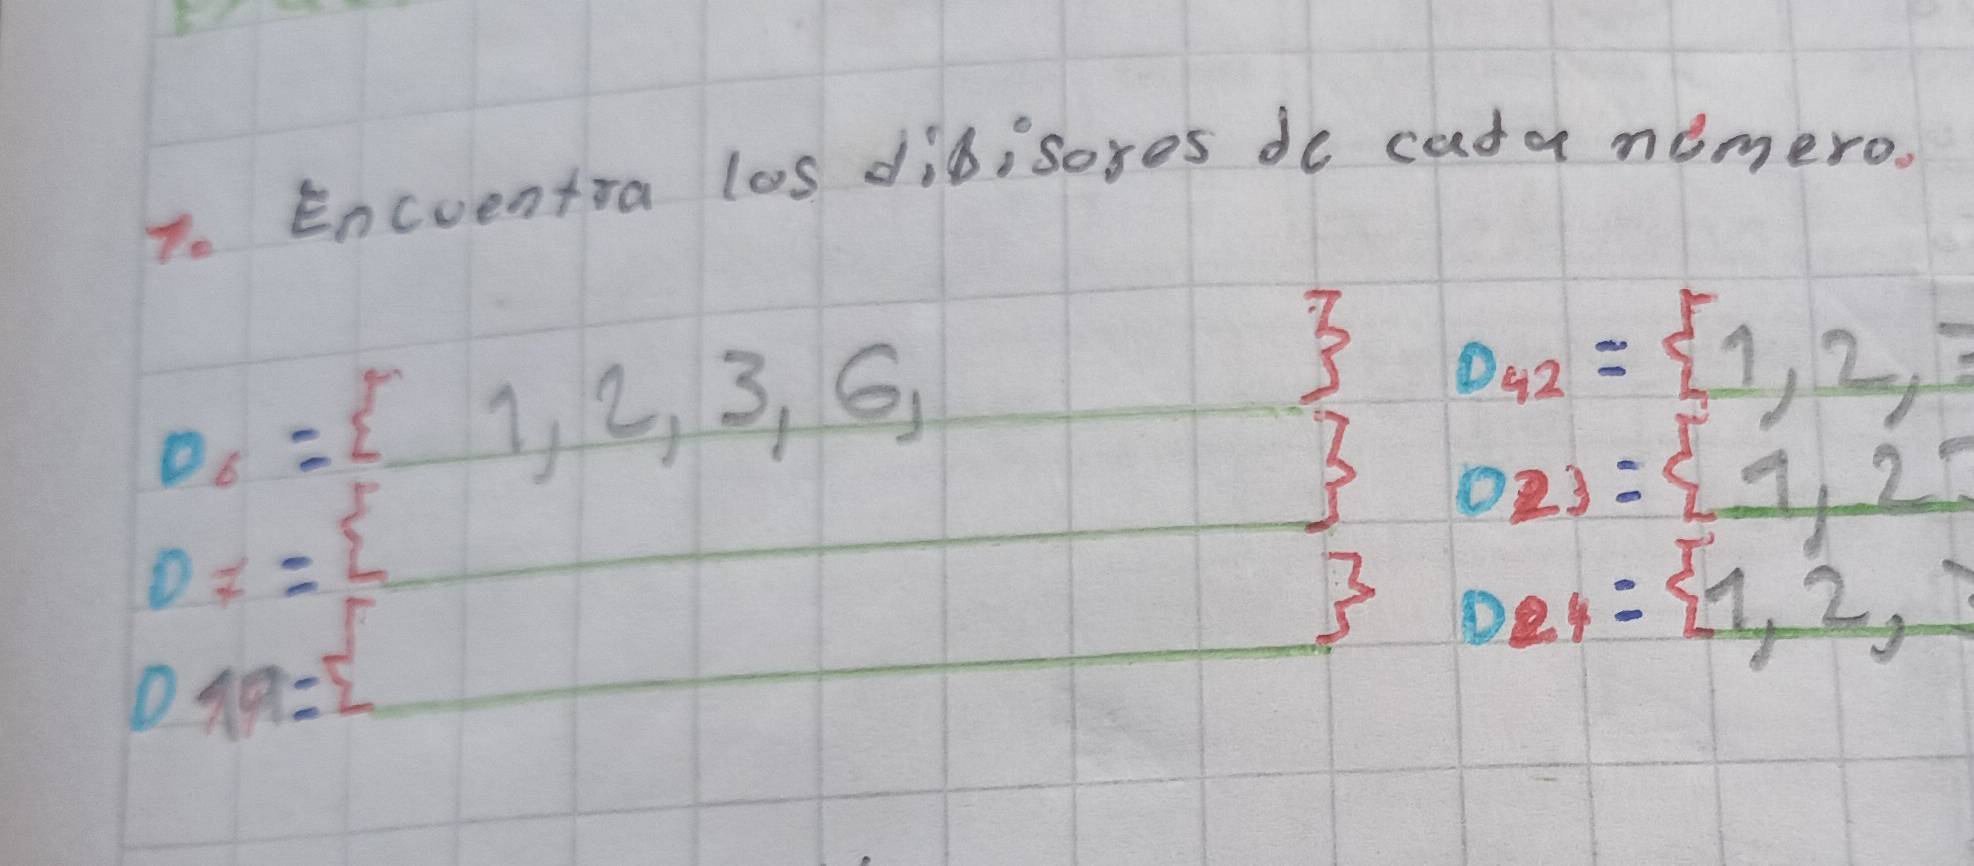 7. Encuentra los dibisores de cada número.
D6 = { 1, 2, 3, 6, } D42 = {1, 2,
D7 = { } D23 = { 1, 2
D19= { } D24 = {1, 2,